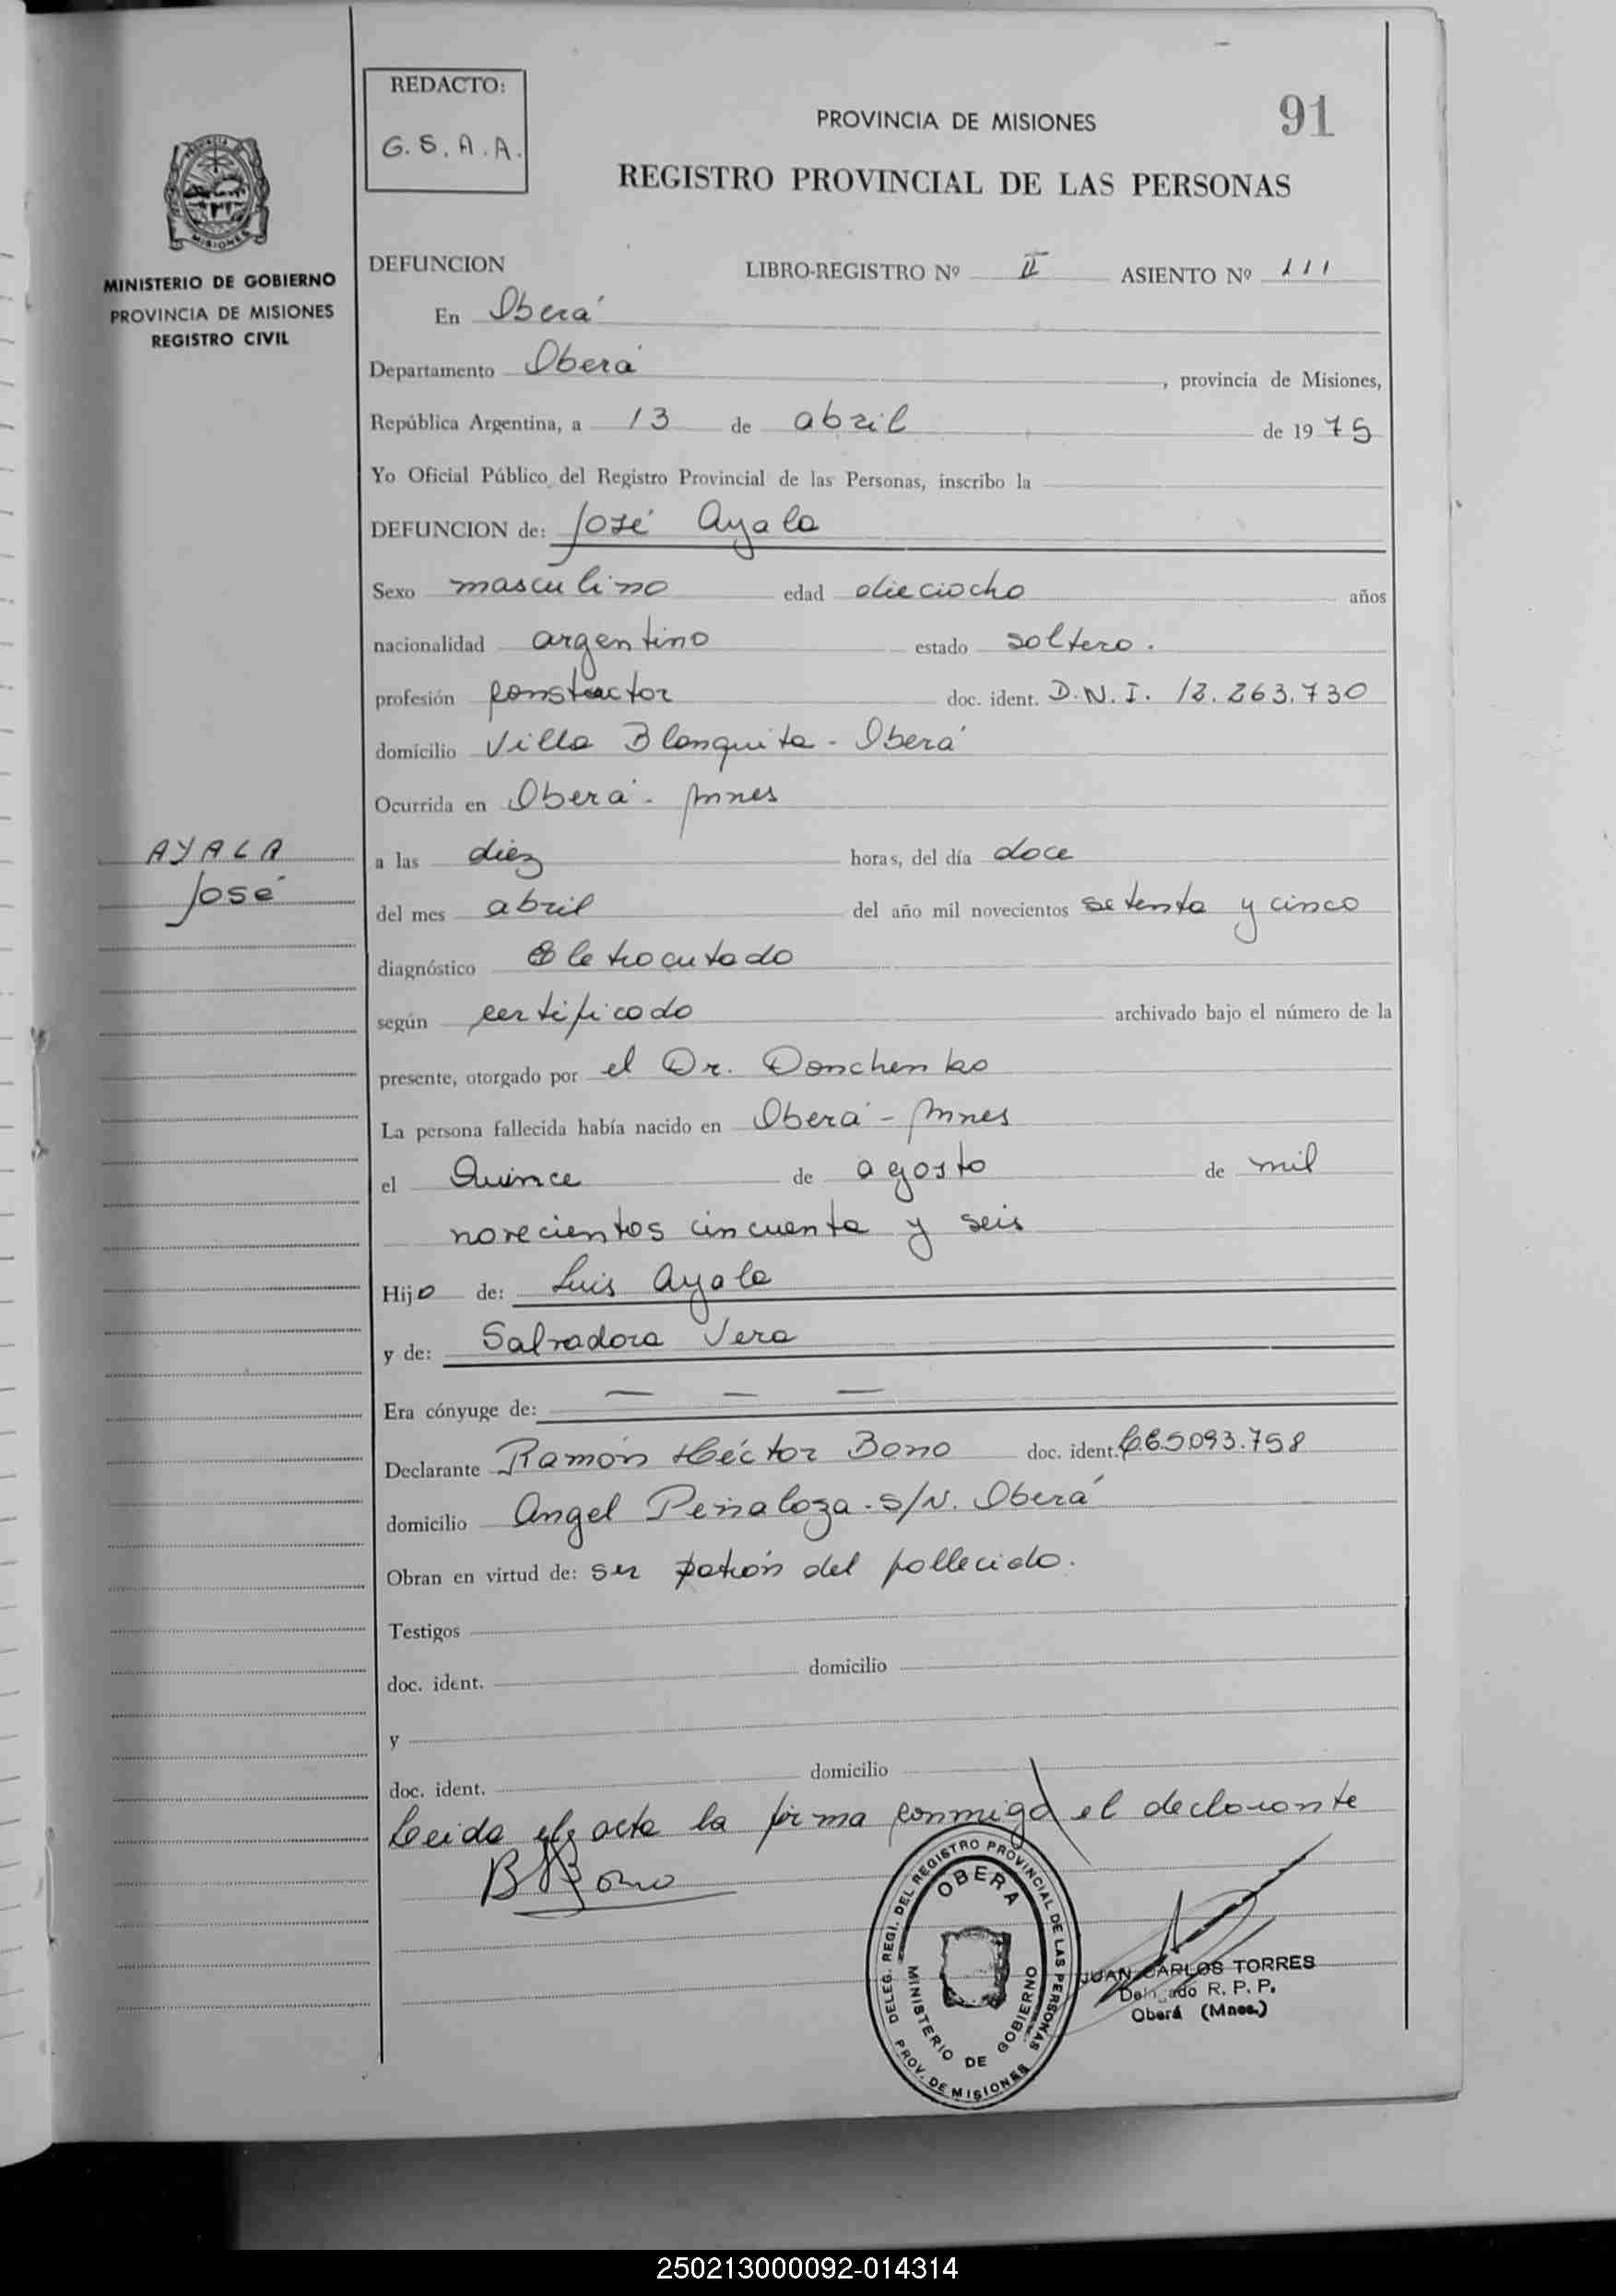 REDACTO:
G. S. A. A.
PROVINCIA DE MISIONES
91
REGISTRO PROVINCIAL DE LAS PERSONAS
MISIONES
MINISTERIO DE GOBIERNO
PROVINCIA DE MISIONES
REGISTRO CIVIL
DEFUNCION LIBRO-REGISTRO Nº II ASIENTO Nº 111
En Oberá
Departamento Oberá, provincia de Misiones,
República Argentina, a 13 de abril de 1975
Yo Oficial Público del Registro Provincial de las Personas, inscribo la
DEFUNCION de: José Ayala
Sexo masculino edad dieciocho años
nacionalidad argentino estado soltero.
profesión constructor doc. ident. D.N.I. 12.263.730
domicilio Villa Blanquita - Oberá
Ocurrida en Oberá - Mnes
a las diez horas, del día doce
del mes abril del año mil novecientos setenta y cinco
diagnóstico Eletrocutado
según certificado archivado bajo el número de la
presente, otorgado por el Dr. Donchenko
La persona fallecida había nacido en Oberá - Mnes
el Quince de agosto de mil
novecientos cincuenta y seis
Hijo de: Luis Ayala
y de: Salvadora Vera
Era cónyuge de: — — —
Declarante Ramón Héctor Bono doc. ident. 5.093.758
domicilio Angel Peñaloza - S/N. Oberá
Obran en virtud de: ser patrón del fallecido.
Testigos
doc. ident. domicilio
y
doc. ident. domicilio
Leida el acta la firma conmigo el declarante
Bono
AYALA
José
DELEG. REGI. DEL REGISTRO PROVINCIAL DE LAS PERSONAS
OBERA
MINISTERIO DE GOBIERNO
PROV. DE MISIONES
JUAN CARLOS TORRES
Delegado R. P. P.
Oberá (Mnes.)
250213000092-014314